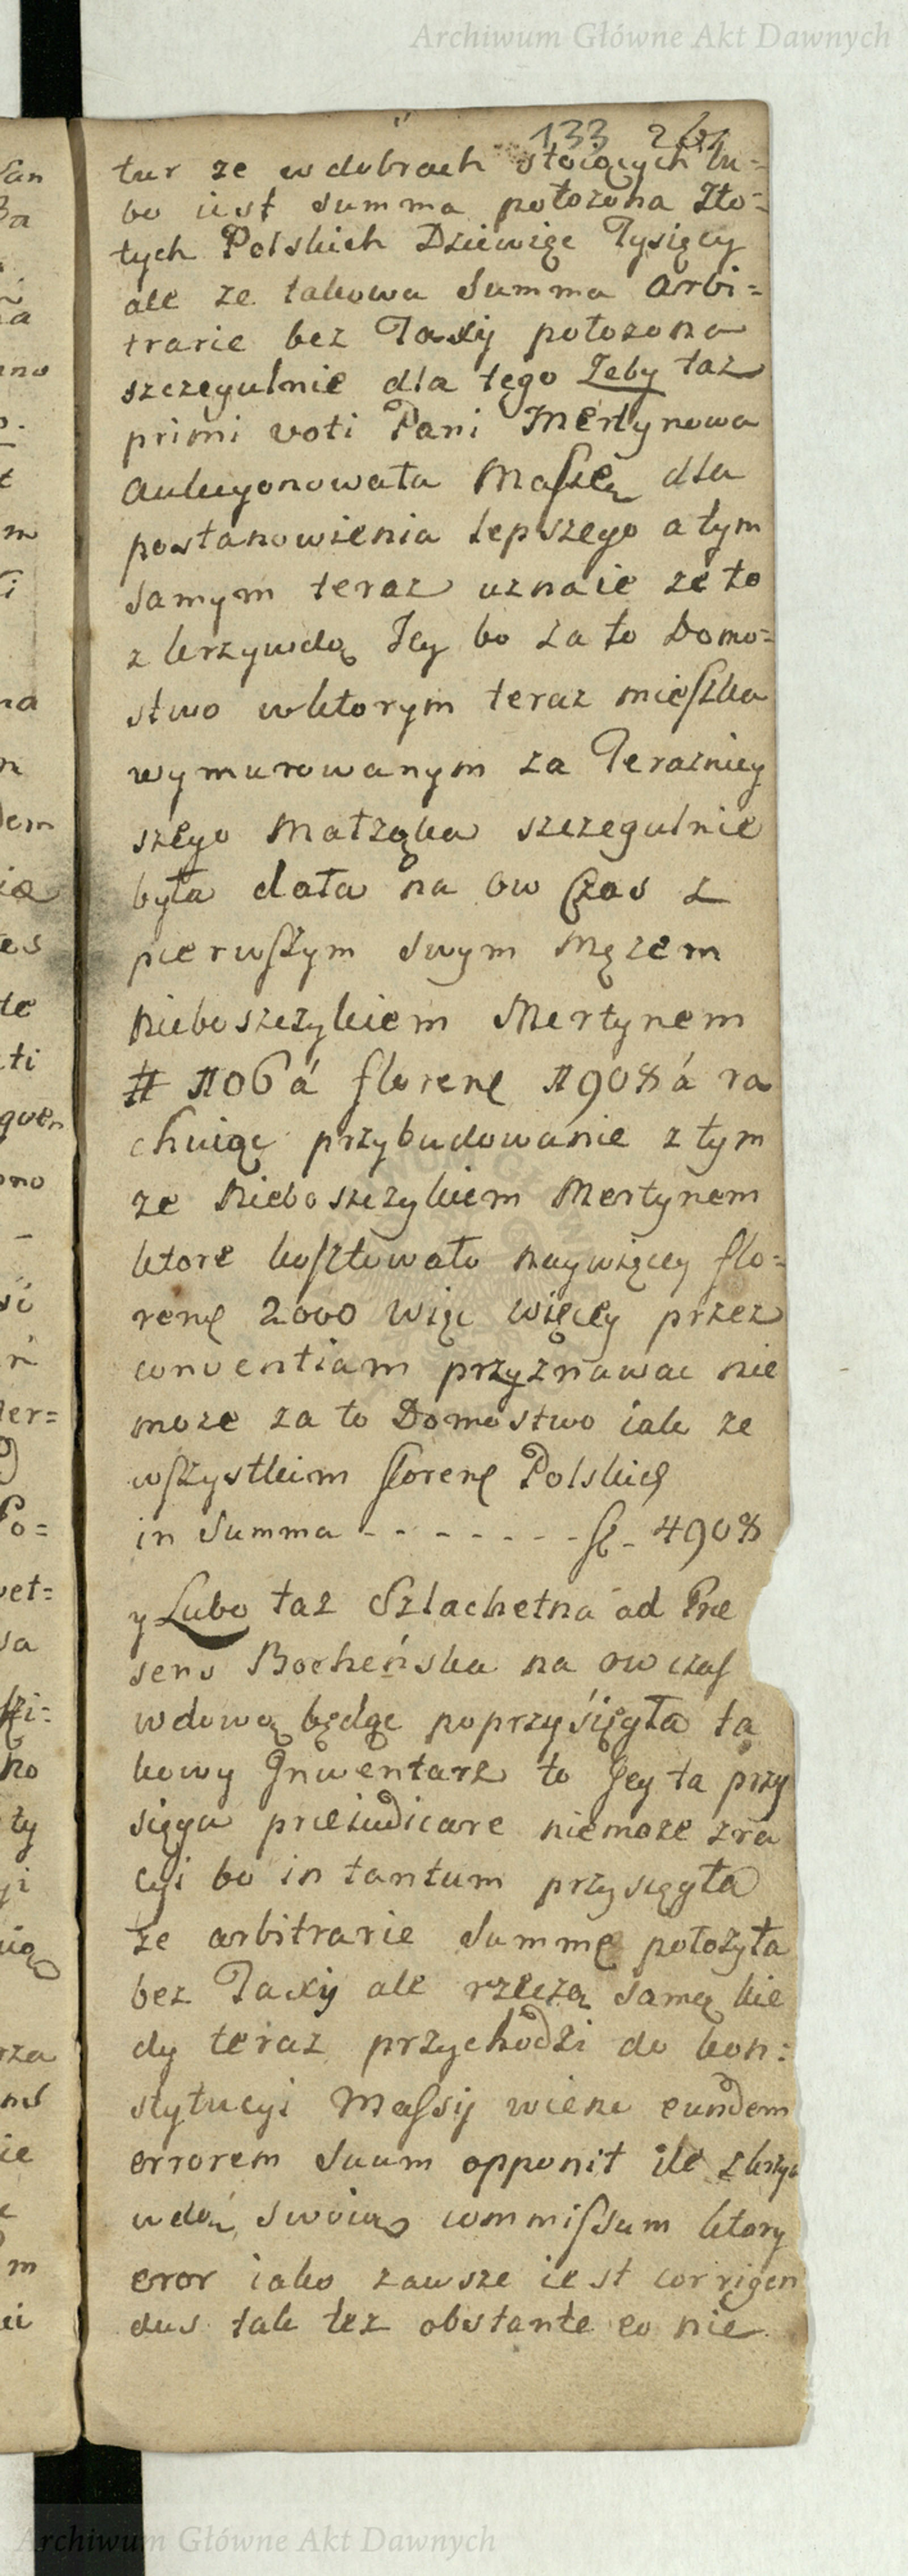 Archiwum Główne Akt Dawnych
133
tur ze w dobrach stoiących lu=
bo iest Summa położona Zło=
tych Polskich Dziewięc Tysięcy
ale ze takowa Summa Arbi=
trarie bez Taxy położona
szczegulnie dla tego Zeby taz
primi voti Pani Mertynowa
Aukcyonowała Massę dla
postanowienia lepszego a tym
samym teraz uznaie ze to
z krzywdą Iey bo za to Domo=
stwo w ktorym teraz mieszka
wymurowanym za Terazniey
szego Małząka szczegulnie
była dała na ow Czas z
pierwszym swym Męzem
Nieboszczykiem Mertynem
florenę
chuiąc przybudowanie z tym
ze Nieboszczykiem Mertynem
ktore kosztowało naywięcey flo=
renę 2000 Więc więcey przez
conventiam przyznawac nie
moze za to Domostwo iak ze
wszystkim florenę Polskich
in Summa - - - - - - - - fl - 4908
y Lubo taz Szlachetna ad Prae
sens Bocheńska na ow czas
wdową będąc poprzysięgła ta
kowy Inwentarz to Iey ta przy
sięga preiudicare niemoze z ra
cyi bo in tantum przysięgła
ze arbitrarie Summę połozyła
bez Taxy ale rzeczą samą kie
dy teraz przychodzi do kon=
stytucyi Massy wienc eundem
errorem Suum opponit ile z krzy
wdą swoią commissum ktory
eror iako zawsze iest corrigen
dus tak tez obstante eo nie
Archiwum Główne Akt Dawnych